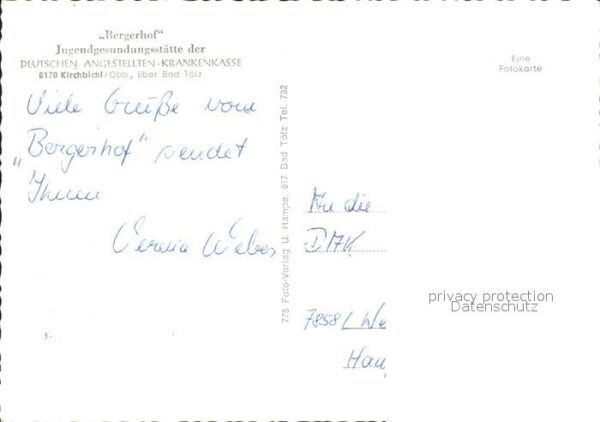 „Bergerhof"
Jugendgesundungsstätte der
DEUTSCHEN ANGESTELLTEN-KRANKENKASSE
8170 Kirchbichl/Obb., über Bad Tölz
Eine
Fotokarte
Viele Grüße vom
„Bergerhof" sendet
Ihnen
Weber
775 Foto-Verlag U. Hampe, 817 Bad Tölz Tel. 792
An die
7858/ We
Hau
privacy protection
Datenschutz